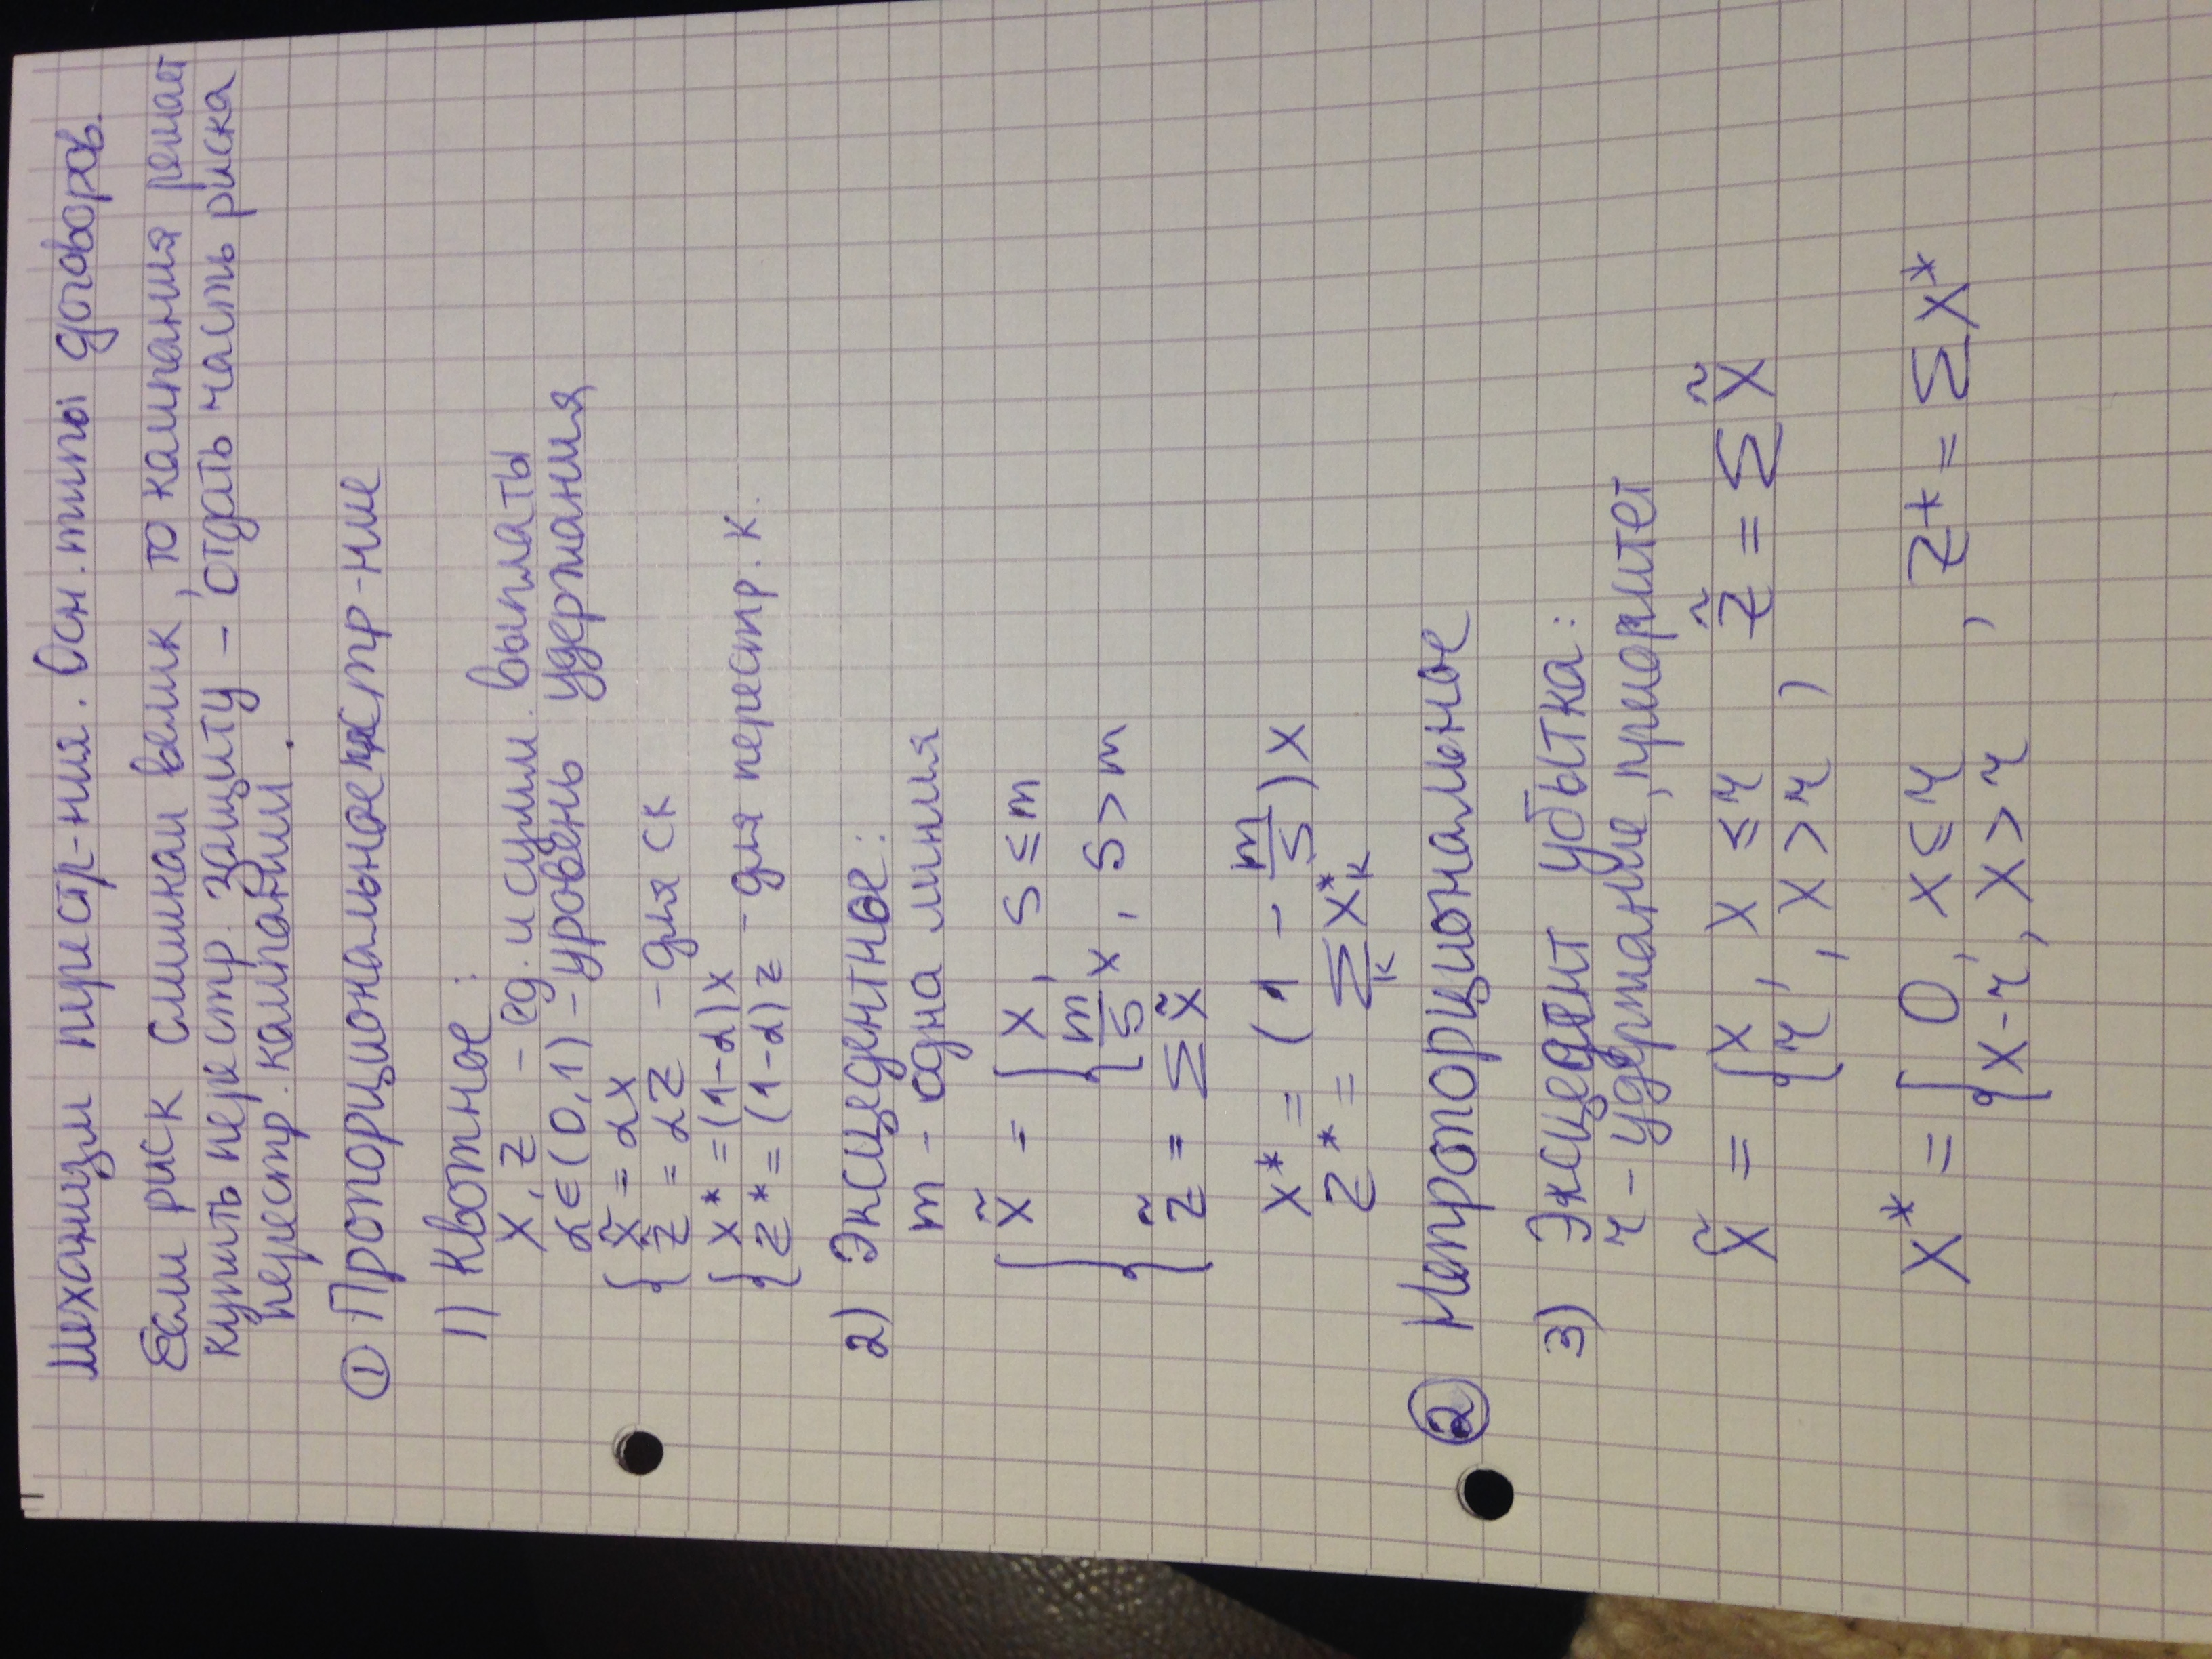 Механизм перестр-ния. Осн. типы договоров.
Если риск слишкам велик, то кампания решает
купить перестр. защиту – отдать часть риска
перестр. кампании.
① Пропорциональное стр-ние
1) Квотное:
X, Z – ед. и сумм. выплаты
α ∈ (0,1) – уровень удержания
{ X̃ = αX
Z̃ = αZ – для СК
{ X* = (1-α)X
Z* = (1-α)Z – для перестр. к.
2) Эксцедентное:
m – одна линия
{ X̃ = { X, S ≤ m
m/S X, S > m
Z̃ = Σ X̃
X* = (1 - m/S) X
Z* = Σ_k X*_k
② Непропорциональное
3) Эксцедент убытка:
r – удержание, приоритет
X̃ = { X, X ≤ r
r, X > r, Z̃ = Σ X̃
X* = { 0, X ≤ r
X-r, X > r, Z* = Σ X*